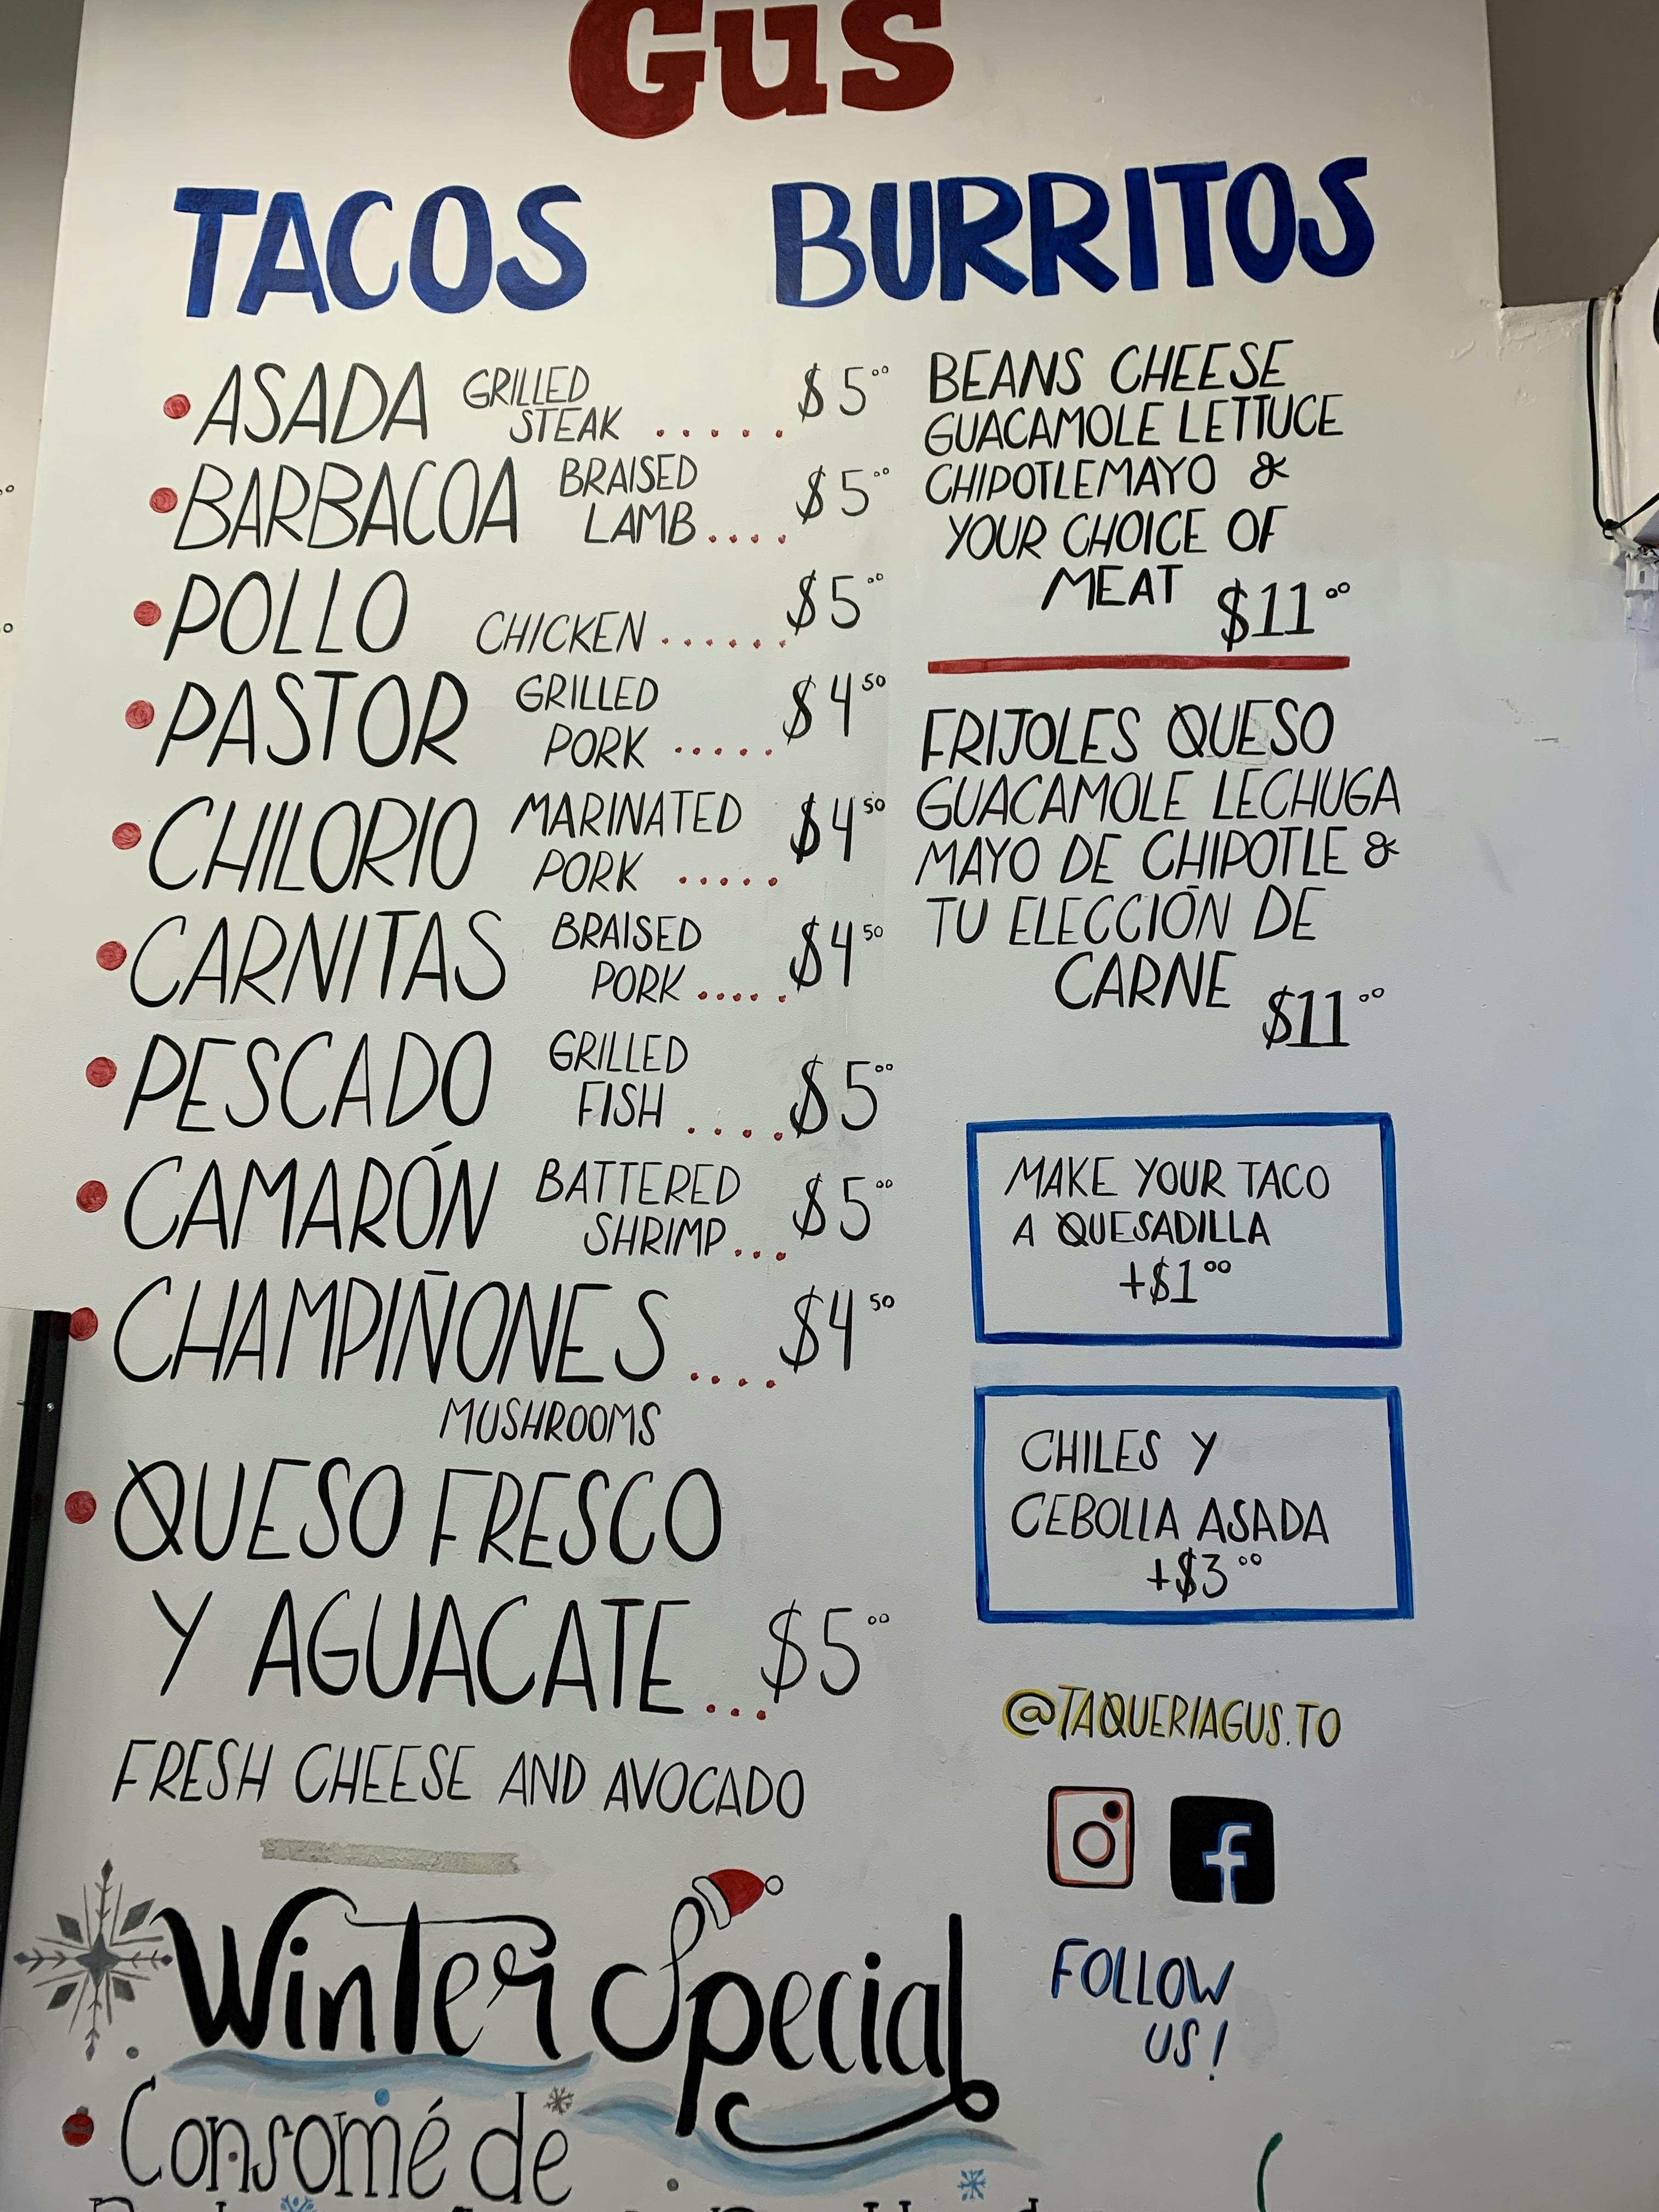 Gus
TACOS
ASADA GRILLED
STEAK ..... $5.00
BARBACOA BRAISED
LAMB.... $5.00
POLLO CHICKEN ...... $5.00
PASTOR GRILLED
PORK ..... $4.50
CHILORIO MARINATED
PORK ..... $4.50
CARNITAS BRAISED
PORK ..... $4.50
PESCADO GRILLED
FISH .... $5.00
CAMARÓN BATTERED
SHRIMP ... $5.00
CHAMPIÑONES .... $4.50
MUSHROOMS
QUESO FRESCO
Y AGUACATE ... $5.00
FRESH CHEESE AND AVOCADO
Winter Special
Consomé de
BURRITOS
BEANS CHEESE
GUACAMOLE LETTUCE
CHIPOTLEMAYO &
YOUR CHOICE OF
MEAT $11.00
FRIJOLES QUESO
GUACAMOLE LECHUGA
MAYO DE CHIPOTLE &
TU ELECCIÓN DE
CARNE $11.00
MAKE YOUR TACO
A QUESADILLA
+$1.00
CHILES Y
CEBOLLA ASADA
+$3.00
@TAQUERIAGUS.TO
FOLLOW
US!